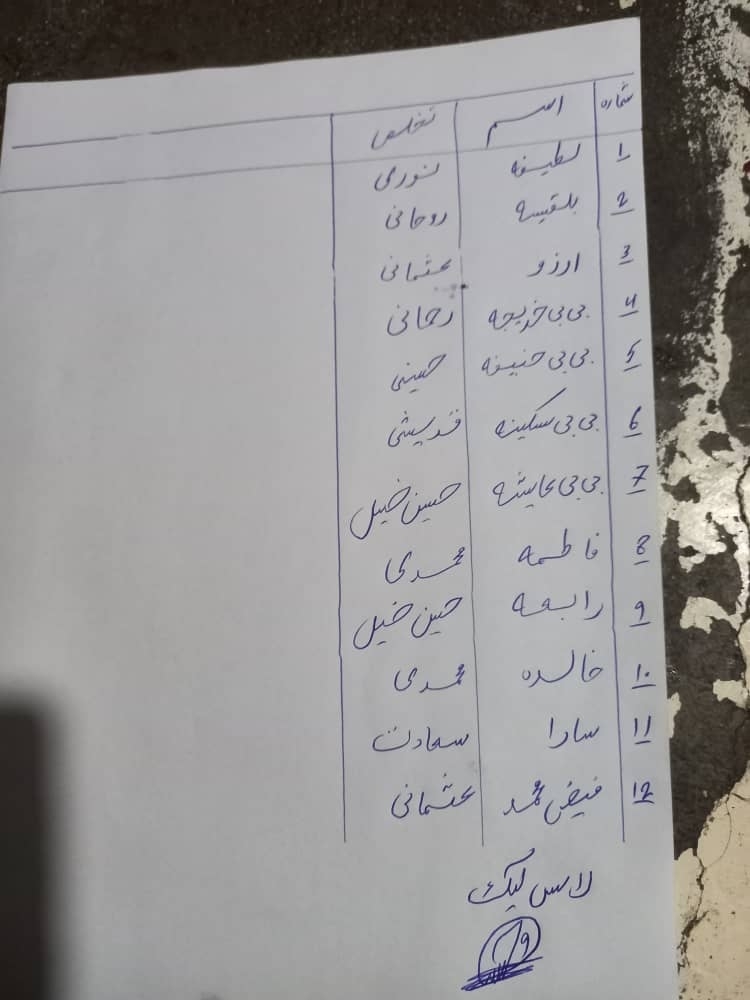 شماره اسم تخلص
1 لطیفه نوری
2 بلقیسه روحانی
3 ارزو عثمانی
4 بی بی خدیجه رحمانی
5 بی بی حنیفه حسینی
6 بی بی سکینه قریشی
7 بی بی عایشه حسین خیل
8 فاطمه محمدی
9 رابعه حسین خیل
10 خالده محمدی
11 سارا سعادت
12 فیض محمد عثمانی
لاس لیک